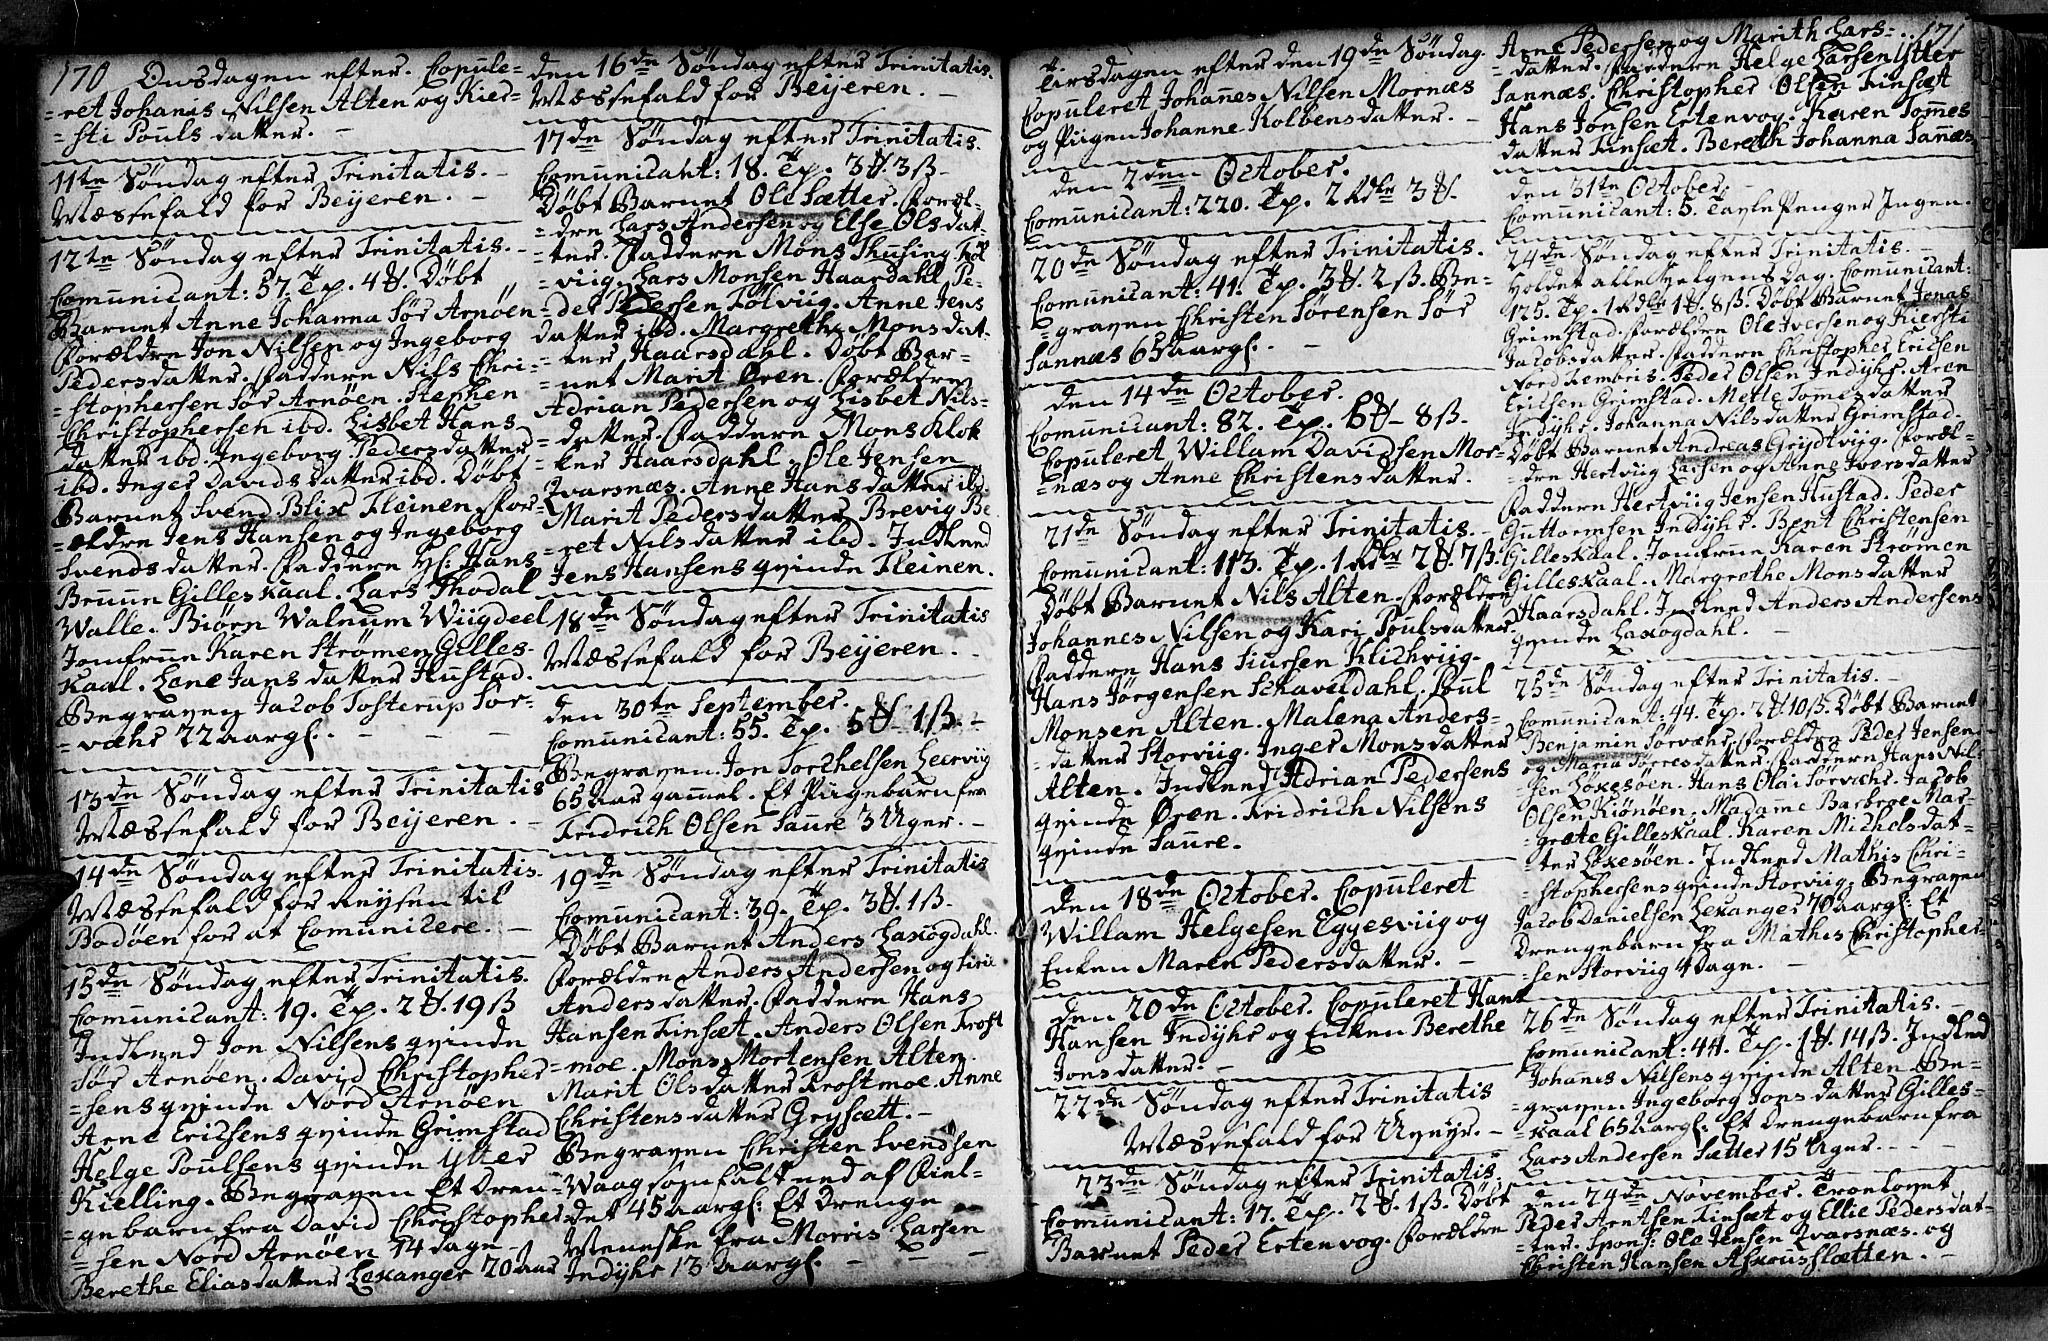 170 Onsdagen efter. Copule-
=ret Johanis Nilsen Alten og Kier-
=sti Pouls datter. -
11te Søndag efter Trinitatis. -
Mæssefald for Beijeren. -
12te Søndag efter Trinitatis. -
Comunicant: 57. Tp. 4 ℔. Døbt
Barnet Anne Johanna Sør Arnøen
Forældre Jon Nilsen og Ingeborg
Pedersdatter. Faddere Nils Chri-
=stophersen Sør Arnøen. Stephen
Christophersen ibd. Lisbet Hans
datter ibd. Ingeborg Pedersdatter
ibd. Inger Davids datter ibd. Døbt
Barnet Svend Blix Fleinen. For-
=ældre Jens Hansen og Ingeborg
Svends datter. Faddere Hr: Hans
Bruun Gilleskaal. Lars Thodal
Walle. Biørn Walnum Wiigdeel
Jomfrue Karen Strømen Gilles-
kaal. Lene Jans datter Hustad.
Begraven Jacob Tosterup Sør-
=væhr 22 aargl. - - -
13de Søndag efter Trinitatis
Mæssefald for Beijeren. -
14de Søndag efter Trinitatis.
Mæssefald for Reysen til
Bodøen for at Comunicere. -
15de Søndag efter Trinitatis.
Comunicant: 19. Tp. 2 ℔. 19 ß
Indlened Jon Nilsens qvinde
Sør Arnøen. David Christopher
=sens qvinde Nord Arnøen
Arne Ericsens qvinde Grimstad
Helge Poulsens qvinde Ytter
Kielling. Begraven Et Dren
=gebarn fra David Christopher
=sen Nord Arnøen 14 dage -
Berethe Elias datter Lexanger 20 aar
den 16de Søndag efter Trinitatis.
Mæssefald for Beijeren. -
17de Søndag efter Trinitatis.
Comunicant: 18. Tp. 3 ℔. 3 ß -
Døbt Barnet Ole Sætter. Foræl-
=dre Lars Andersen og Else Ols dat-
=ter. Faddere Mons Thusing Føl
=viig. Lars Monsen Haarsdahl Pe-
=der Pedersen Følviig. Anne Jens
datter ibd. Margrethe Mons dat-
=ter Haarsdahl. Døbt Bar-
=net Marit Øren. Forældre
Adrian Pedersen og Lisbet Nils-
=datter. Faddere Mons Klok
=ker Haarsdahl. Ole Jensen
Ivarsnæs. Anne Hans datter ibd.
Marit Peders datter Brevig Be
=ret Nils datter ibd. Indlened
Jens Hansens qvinde Fleinen.
18de Søndag efter Trinitatis
Mæssefald for Beijeren. -
den 30te September.
Comunicant: 55. Tp. 5 ℔ 1 ß. -
Begraven Jon Torchelsen Leerviig
65 aar gammel. Et Pigebarn fra
Fridrich Olsen Saure 3 Uger. -
19de Søndag efter Trinitatis
Comunicant: 39. Tp. 3 ℔. 1 ß -
Døbt Barnet Anders Laxøgdahl.
Forældre Anders Andersen og Siril
Anders datter. Faddere Hans
Hansen Finsæt. Anders Olsen Trost
=moe. Mons Mortensen Alten.
Marit Ols datter Trostmoe. Anne
Christens datter Grysætt. -
Begraven Christen Svendsen
Waag som falt ned af Fiel-
=det 45 aargl: Et Drenge
Menneske fra Morris Larsen
Indyhr 13 aargl. -
Tirsdagen efter den 19de Søndag.
Copuleret Johannes Nilsen Mornæs
og Pigen Johanne Kolbensdatter. -
den 2den October.
Comunicant: 220. Tp. 2 Rdlr 3 ℔.
20de Søndag efter Trinitatis.
Comunicant: 41. Tp. 3 ℔. 2 ß. Be-
=graven Christen Sørensen Sør
Sannæs 65 aargl. -
den 14de October.
Comunicant: 82. Tp. 6 ℔ - 8 ß -
Copuleret Willam Davidsen Mor-
=næs og Anne Christens datter.
21de Søndag efter Trinitatis. -
Comunicant: 113. Tp. 1 Rdlr 2 ℔. 7 ß.
Døbt Barnet Nils Alten. Forældre
Johannes Nilsen og Kari Poulsdatter
Faddere Hans Siursen Klichviig.
Hans Jørgensen Schaveldahl. Poul
Monsen Alten. Malena Anders-
=datter Storviig. Inger Mons datter
Alten. Indlened Adrian Pedersens
qvinde Øren. Fridrich Nilsens
qvinde Saure.
den 18de October. Copuleret
Willam Helgesen Eggesviig og
Enken Maren Pedersdatter. -
den 20de October. Copuleret Hans
Hansen Indyhr og Enken Berethe
Jonsdatter. -
22de Søndag efter Trinitatis
Mæssefald for Uvejr. -
23de Søndag efter Trinitatis.
Comunicant: 17. Tp. 2 ℔. 1 ß. Døbt
Barnet Peder Ertenvog. Forældre
Arne Pedersen og Marith Lars- 171
=datter. Faddere Helge Larsen Ytter
Sannæs. Christopher Olsen Finsæt
Hans Jonsen Ertenvog. Karen Tommes
datter Finsæt. Bereth Johanna Sannæs
den 31te October. -
Comunicant: 5. Tavle Penger Ingen.
24de Søndag efter Trinitatis. -
Holdet alle Helgens Dag. Comunicant:
125. Tp. 1 Rdlr 1 ℔. 8 ß. Døbt Barnet Jonas
Grimstad. Forældre Ole Iversen og Kiersti
Jacobsdatter. Faddere Christopher Ericsen
Nord Fembris. Peder Olsen Indyhr. Aren
Ericsen Grimstad. Mette Tomesdatter
Indyhr. Johanna Nilsdatter Grimstad.
Døbt Barnet Andreas Grydtviig. Foræl-
=dre Hertviig Larsen og Anne Ivers datter
Faddere Hertviig Jensen Hustad. Peder
Guttormsen Indyhr. Bent Christensen
Gilleskaal. Jomfrue Karen Strømen
Gilleskaal. Margrethe Mons datter
Haarsdahl. Indlened Anders Andersens
qvinde Laxøgdahl. -
25de Søndag efter Trinitatis. -
Comunicant: 44. Tp. 2 ℔ 10 ß. Døbt Barnet
Benjamin Sørvæhr. Forældre Peder Jensen
og Maria Torresdatter. Faddere Hans Nil-
=sen Løxesøen. Hans Olai Sørvæhr. Jacob
Olsen Kiønøen. Madame Barbroe Mar-
=grete Gilleskaal. Karen Michels dat-
=ter Løxesøen. Indlened Mathis Chri-
=stophersens qvinde Storviig. Begraven
Jacob Danielsen Lexanger 70 aargl: Et
Drengebarn fra Mathis Christopher-
=sen Storviig 4 Dage. -
26de Søndag efter Trinitatis.
Comunicant: 44. Tp. 1 ℔. 14 ß. Indlened
Johanis Nilsens qvinde Alten. Be-
=graven Ingeborg Jons datter Gilles-
=kaal 65 aargl: Et Drengebarn fra
Lars Andersen Sætter 15 Uger. -
den 24de November. Troelovet
Peder Arntsen Finsæt og Ellie Pedersdat-
=ter. Spons: Ole Jensen Ivarsnæs. og
Christen Hansen Aschousslætten. -